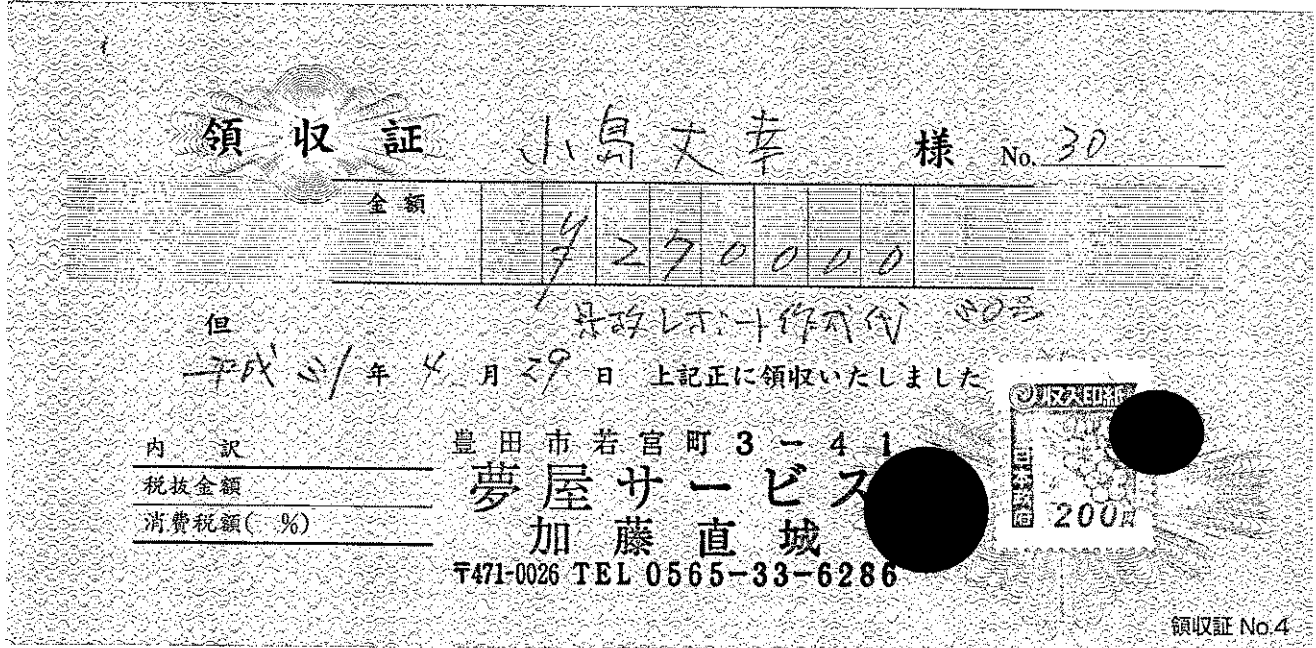 領収証 小島丈幸 様 No. 30
金額 ¥270000
但 県政レポート作成代 30号
平成31年4月29日 上記正に領収いたしました
収入印紙
200円
内訳
税抜金額
消費税額( %)
豊田市若宮町3-41
夢屋サービス
加藤直城
〒471-0026 TEL 0565-33-6286
領収証 No.4